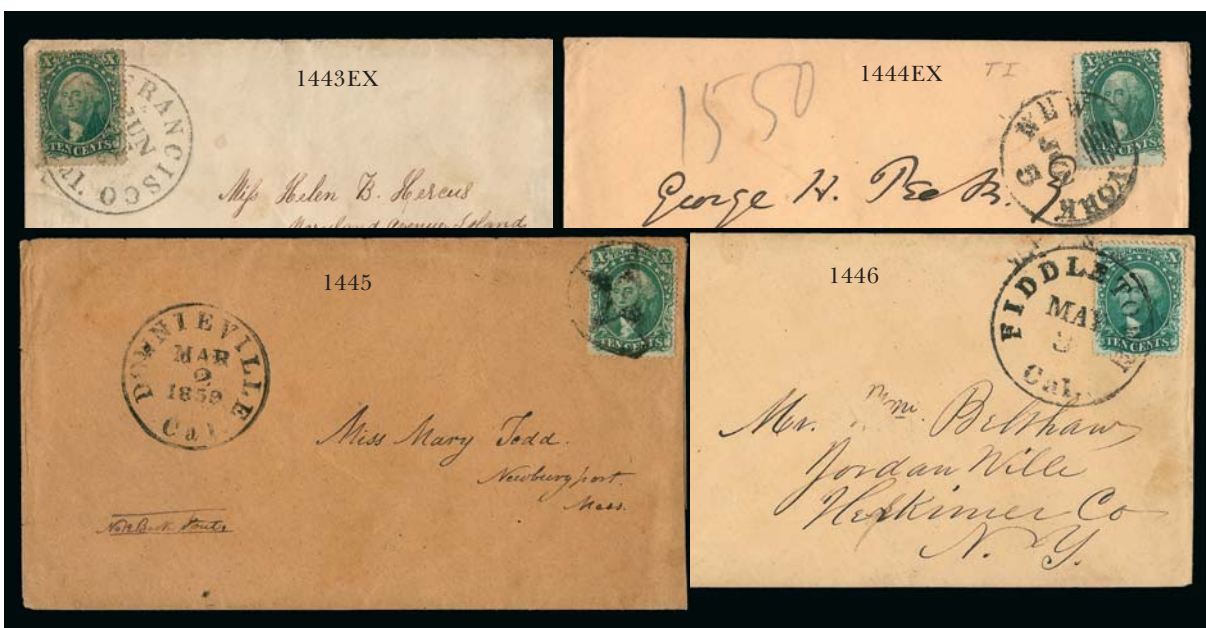 1443EX
X X
TEN CENTS
FRANCISCO
JUN
Miss Helen B. Hercus
Maryland Avenue Island
1444EX
TI
1550
X
CENTS
NEW YORK
5
George H.
1445
X
TEN CENTS
DOWNIEVILLE
MAR
2
1859
Cal.
Miss Mary Todd.
Newburyport.
Mass.
1446
X X
TEN CENTS
FIDDLETOWN
MAY
3
Cal.
Mr. Wm. Belshaw
Jordan Ville
Herkimer Co
N. Y.